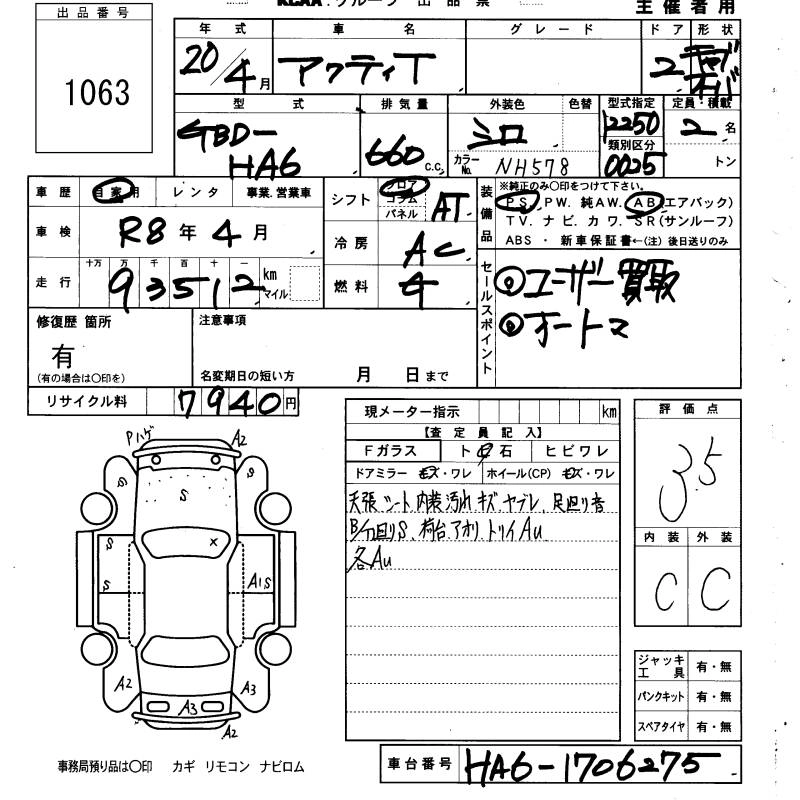 KCAA.グループ 出品票
主催者用
出品番号
1063
年式 車名 グレード ドア 形状
20/4月 アクティT 2
型式 排気量 外装色 色替 型式指定 定員・積載
GBD-HA6 660 c.c. シロ 12250 2名
カラーNo. NH578 類別区分 0025 トン
車歴 自家用 レンタ 事業.営業車
車検 R8年4月
走行 十万 万 千 百 十 一 km マイル
93512
シフト フロア コラム パネル AT
冷房 AC
燃料 4
装備品 ※純正のみ〇印をつけて下さい。
PS. PW. 純AW. AB(エアバック)
TV. ナビ. カワ. SR(サンルーフ)
ABS ・ 新車保証書←(注)後日送りのみ
セールスポイント
◎ユーザー買取
◎オートマ
修復歴 箇所
有
(有の場合は〇印を)
注意事項
名変期日の短い方 月 日まで
リサイクル料 7940円
現メーター指示 km
【査定員記入】
Fガラス ト 石 ヒビワレ
ドアミラー キズ・ワレ ホイール(CP) キズ・ワレ
天張シート内装汚れキズヤブレ、足廻り音
B/分回りS、荷台アオリトリイAu
各Au
評価点
3.5
内装 外装
C C
ジャッキ工具 有・無
パンクキット 有・無
スペアタイヤ 有・無
Pハゲ A2
S S
S
S ×
S A1S
A2 A3 A3
A2
事務局預り品は〇印 カギ リモコン ナビロム
車台番号 HA6-1706275